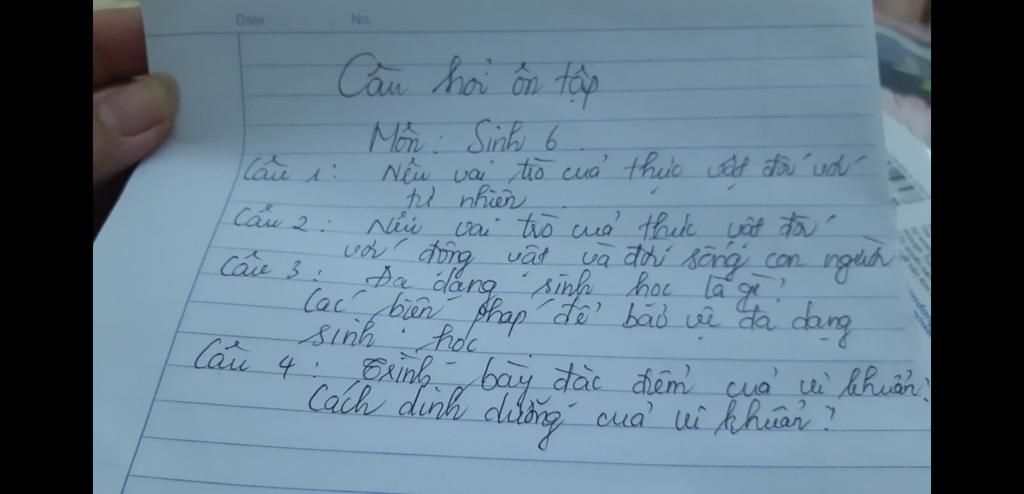 Date . . . No.
Câu hỏi ôn tập
Môn: Sinh 6.
Câu 1: Nêu vai trò của thực vật đối với
tự nhiên.
Câu 2: Nêu vai trò của thực vật đối
với động vật và đời sống con người
Câu 3: Đa dạng sinh học là gì?
Các biện pháp để bảo vệ đa dạng
sinh học
Câu 4: Trình bày đặc điểm của vi khuẩn?
Cách dinh dưỡng của vi khuẩn?